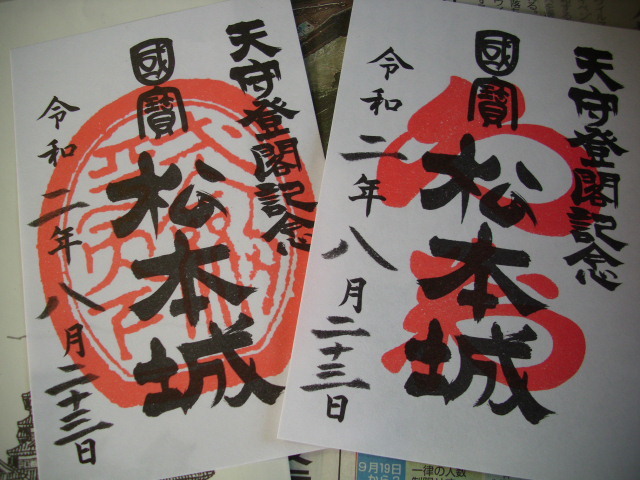 天守登閣記念
國寳
松本城
令和二年八月二十三日
天守登閣記念
國寳
松本城
令和二年八月二十三日
9月19日
から
一律の人数